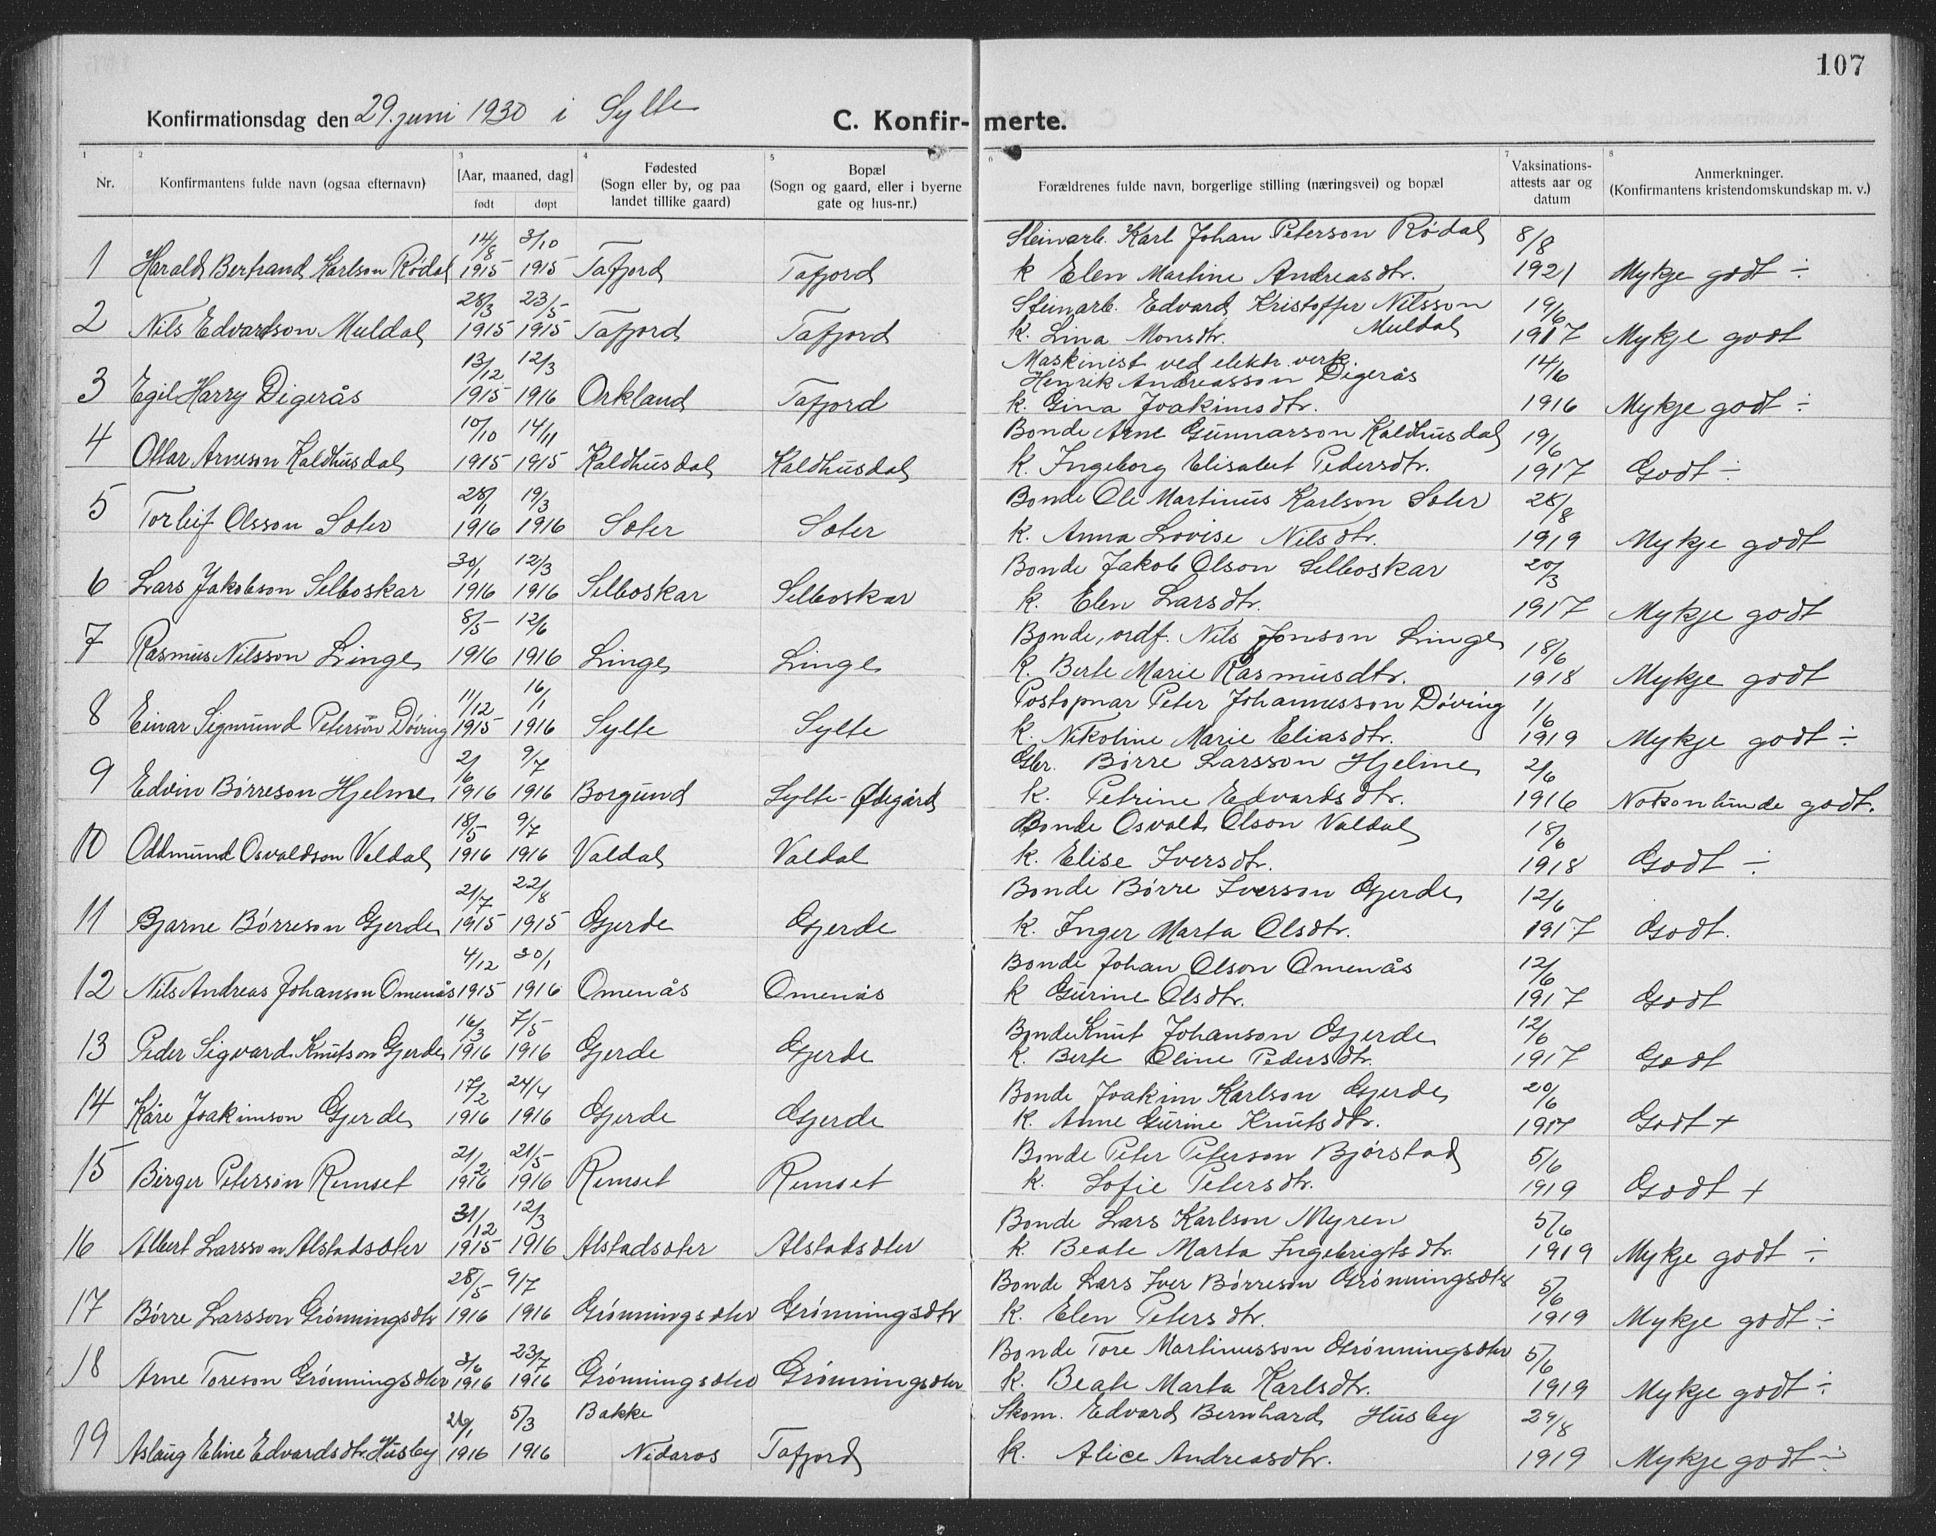 107
Konfirmationsdag den 29. juni 1930 i Sylte
C. Konfir-merte.
1 2 3 4 5 6 7 8
Nr. Konfirmantens fulde navn (ogsaa efternavn) [Aar, maaned, dag] født døpt Fødested (Sogn eller by, og paa landet tillike gaard) Bopæl (Sogn og gaard, eller i byerne gate og hus-nr.) Forældrenes fulde navn, borgerlige stilling (næringsvei) og bopæl Vaksinations-attests aar og datum Anmerkninger. (Konfirmantens kristendomskundskap m. v.)
14/8 3/10 Steinarb. Karl Johan Peterson Rødal 8/8
1 Harald Bertrand Karlson Rødal 1915 1915 Tafjord Tafjord k Elen Martine Andreasdtr. 1921 Mykje godt ÷
28/3 23/5 Steinarb. Edvard Kristoffer Nilsson Muldal 19/6
2 Nils Edvardson Muldal 1915 1915 Tafjord Tafjord k. Lina Monsdtr. 1917 Mykje godt
13/12 12/3 Maskinist ved elektr. verk. 14/6
Henrik Andreasson Digerås
3 Egil Harry Digerås 1915 1916 Orkland Tafjord k. Gina Joakimsdtr. 1916 Mykje godt ÷
10/10 14/11 Bonde Arne Gunnarson Kaldhusdal 19/6
4 Ottar Arneson Kaldhusdal 1915 1915 Kaldhusdal Kaldhusdal k. Ingeborg Elisabet Pedersdtr. 1917 Godt ÷
28/1 19/3 Bonde Ole Martinus Karlson Sæter 28/8
5 Torleif Olsson Sæter 1916 1916 Sæter Sæter k. Anna Lovise Nilsdtr. 1919 Mykje godt
30/1 12/3 Bonde Jakob Olson Selboskar 20/3
6 Lars Jakobson Selboskar 1916 1916 Selboskar Selboskar k. Elen Larsdtr. 1917 Mykje godt
8/5 12/6 Bonde, ordf. Nils Jonson Linge 18/6
7 Rasmus Nilsson Linge 1916 1916 Linge Linge k. Berte Marie Rasmusdtr. 1918 Mykje godt
11/12 16/1 Postopnar Peter Johannesson Døving 1/6
8 Einar Sigmund Peterson Døving 1915 1916 Sylte Sylte k. Nikoline Marie Eliasdtr. 1919 Mykje godt ÷
2/6 9/7 Gbr. Børre Larsson Hjelme 2/6
9 Edvin Børreson Hjelme 1916 1916 Borgund Sylte-Ødegård k. Petrine Edvardsdtr. 1916 Nokonlunde godt.
18/5 9/7 Bonde Osvald Olson Valdal 18/6
10 Oddmund Osvaldson Valdal 1916 1916 Valdal Valdal k. Elise Iversdtr. 1918 Godt ÷
21/7 22/8 Bonde Børre Iverson Gjerde 12/6
11 Bjarne Børreson Gjerde 1915 1915 Gjerde Gjerde k Inger Marta Olsdtr. 1917 Godt.
4/12 30/1 Bonde Johan Olson Omenås 12/6
12 Nils Andreas Johanson Omenås 1915 1916 Omenås Omenås k Gurine Olsdtr. 1917 Godt
16/3 7/5 Bonde Knut Johanson Gjerde 12/6
13 Peder Sigvard Knutson Gjerde 1916 1916 Gjerde Gjerde k. Berte Oline Pedersdtr. 1917 Godt
17/2 24/4 Bonde Joakim Karlson Gjerde 20/6
14 Kåre Joakimson Gjerde 1916 1916 Gjerde Gjerde k. Anne Gurine Knutsdtr. 1917 Godt +
21/2 21/5 Bonde Peter Peterson Bjørstad 5/6
15 Birger Peterson Remset 1916 1916 Remset Remset k. Sofie Petersdtr. 1919 Godt +
31/12 12/3 Bonde Lars Karlson Myren 5/6
16 Albert Larsson Alstadsæter 1915 1916 Alstadsæter Alstadsæter k. Beate Marta Ingebrigtsdtr. 1919 Mykje godt ÷
28/5 9/7 Bonde Lars Iver Børreson Grønningsæter 5/6
17 Børre Larsson Grønningsæter 1916 1916 Grønningsæter Grønningsæter k. Elen Petersdtr. 1919 Mykje godt ÷
3/6 23/7 Bonde Tore Martinusson Grønningsæter 5/6
18 Arne Toreson Grønningsæter 1916 1916 Grønningsæter Grønningsæter k. Beate Marta Karlsdtr. 1919 Mykje godt ÷
5/3 Bakke Skom. Edvard Bernhard Husby 29/8
19 Aslaug Eline Edvardsdtr. Husby 1916 1916 Nidaros Tafjord k. Alice Andreasdtr. 1919 Mykje godt ÷